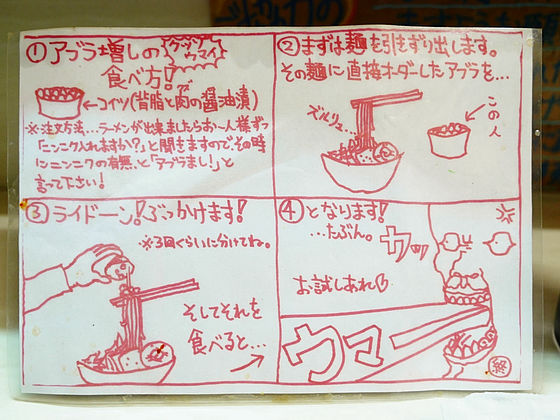 ①アブラ増しの
グッツ
ウマイ
食べ方!
←コイツ(背脂と肉の醤油漬)
※注文方法…ラーメンが出来ましたらお一人様ずつ
「ニンニク入れますか?」と聞きますので、その時
にニンニクの有無、と「アブラまし!」と
言って下さい!
②まずは麺を引きずり出します。
その麺に直接オーダーしたアブラを…
ズルリェ…
この人
③ライドーン!ぶっかけます!
※3回くらいに分けてね。
そしてそれを
食べると…
④となります!
…たぶん。
カッ
お試しあれ♡
ウマー
終